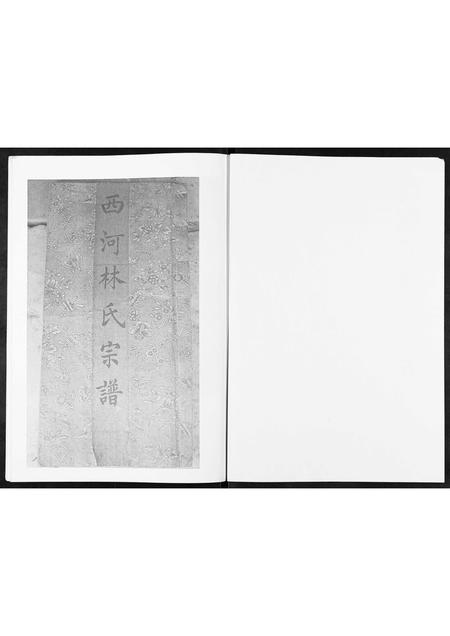 西河林氏宗譜